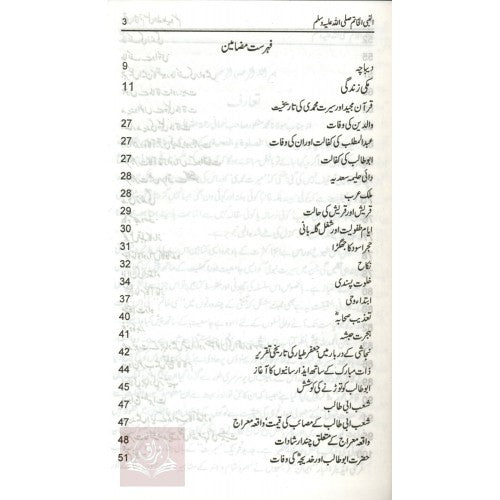 النبی الخاتم صلی اللہ علیہ وسلم 3
فہرست مضامین
دیباچہ 9
مکی زندگی 11
قرآن مجید اور سیرت محمدی کی تاریخیت
والدین کی وفات 27
عبدالمطلب کی کفالت اور ان کی وفات 27
ابوطالب کی کفالت 27
دائی حلیمہ سعدیہ 28
ملک عرب 28
قریش اور قریش کی حالت 29
ایام طفولیت اور شغل گلہ بانی 30
حجر اسود کا جھگڑا 31
نکاح 32
خلوت پسندی 34
ابتداء وحی 37
تعذیب صحابہؓ 40
ہجرت حبشہ 41
نجاشی کے دربار میں جعفر طیار کی تاریخی تقریر 42
ذات مبارک کے ساتھ ایذا رسانیوں کا آغاز 44
ابوطالب کو توڑنے کی کوشش 45
شعب ابی طالب 47
شعب ابی طالب کے مصائب کی قیمت واقعہ معراج 47
واقعہ معراج کے متعلق چند ارشادات 48
حضرت ابوطالب اور خدیجہؓ کی وفات 51